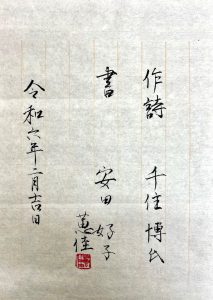 作詩 千住博氏
書 安田好子
蕙佳
令和六年二月吉日